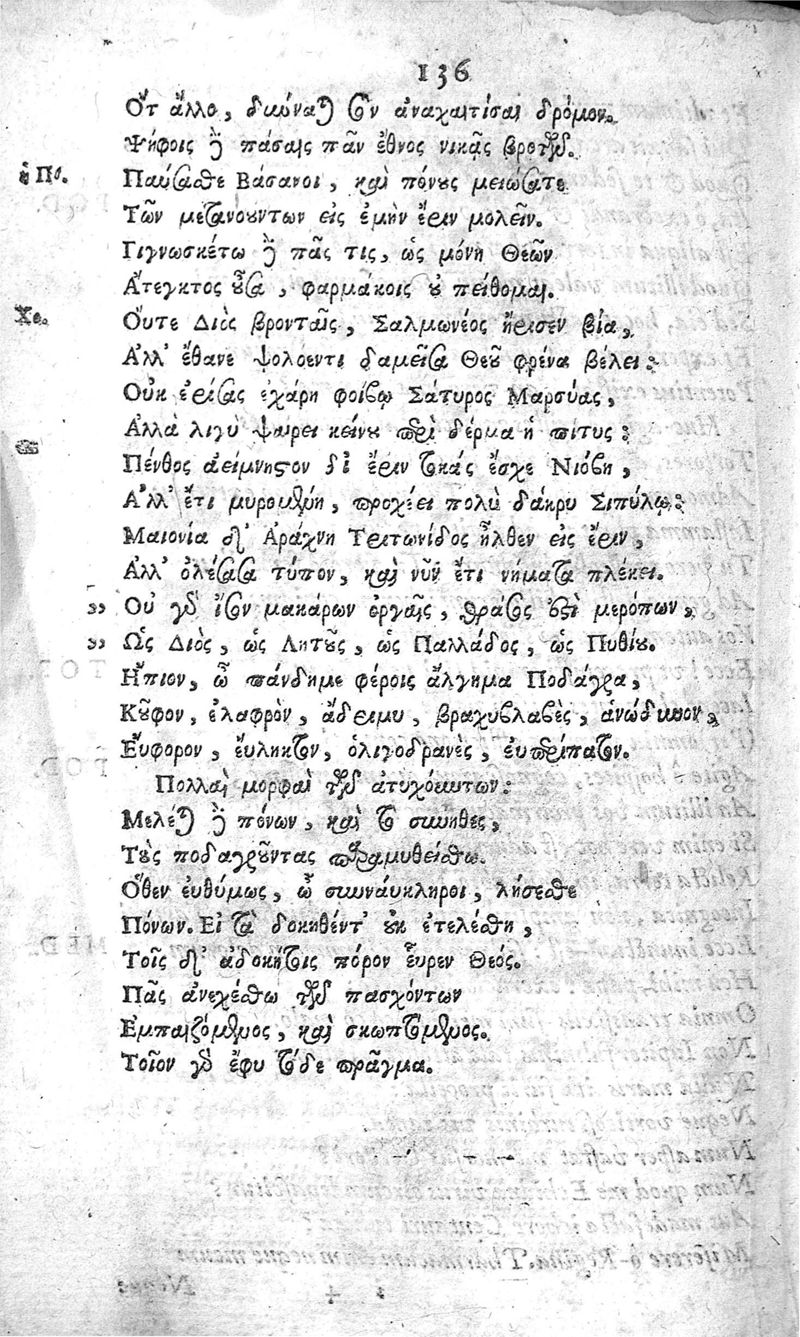 136
Οὔτ ἄλλο, δυώναται σὸν ἀναχαιτίσαι δρόμον.
Ψήφοις δὲ πάσαις πᾶν ἔθνος νικᾷς βροτῶν.
ἡ Πο. Παύσασθε Βάσανοι, καὶ πόνους μειώσατε
Τῶν μετανούντων εἰς ἐμὴν ἔριν μολεῖν.
Γιγνωσκέτω δὲ πᾶς τις, ὡς μόνη Θεῶν
Ατεγκτος οὖσα, φαρμάκοις οὐ πείθομαι.
Χο. Οὔτε Διὸς βρονταῖς, Σαλμωνέος ἤρισεν βία,
Αλλ' ἔθανε ψολοεντι δαμεῖσα Θεοῦ φρένα βέλει:
Οὐκ ἐρίσας ἐχάρη φοίβῳ Σάτυρος Μαρσύας,
Αλλὰ λιγὺ ψαιρει κείνου περὶ δέρμα ἡ πίτυς:
Πένθος ἀείμνηστον δι' ἔριν τοκὰς ἔσχε Νιόβη,
Αλλ' ἔτι μυρομένη, προχέει πολὺ δάκρυ Σιπύλῳ:
Μαιονία δ' Αράχνη Τριτωνίδος ἦλθεν εἰς ἔριν,
Αλλ' ὀλέσασα τύπον, καὶ νῦν ἔτι νήματα πλέκει.
„ Οὐ γὰρ ἴσον μακάρων ὀργαῖς, θράσος ἐστὶ μερόπων,
„ Ως Διὸς, ὡς Λητοῦς, ὡς Παλλάδος, ὡς Πυθίου.
Ηπιον, ὦ πάνδημε φέροις ἄλγημα Ποδάγρα,
Κοῦφον, ἐλαφρὸν, ἄδριμυ, βραχυβλαβὲς, ἀνώδυνον,
Εὔφορον, εὔληκτον, ὀλιγοδρανὲς, εὐπερίπατον.
Πολλαὶ μορφαὶ τῶν ἀτυχούντων:
Μελέται δὲ πόνων, καὶ τὸ σύνηθες,
Τοὺς ποδαγρῶντας παραμυθείσθω.
Οθεν εὐθύμως, ὦ συνάυκληροι, λήσεσθε
Πόνων. Εἰ τὰ δοκηθέντ' οὐκ ἐτελέσθη,
Τοῖς δ' ἀδοκήτοις πόρον εὗρεν Θεός.
Πᾶς ἀνεχέσθω τῶν πασχόντων
Εμπαιζόμενος, καὶ σκωπτόμενος.
Τοῖον γὰρ ἔφυ τόδε πρᾶγμα.